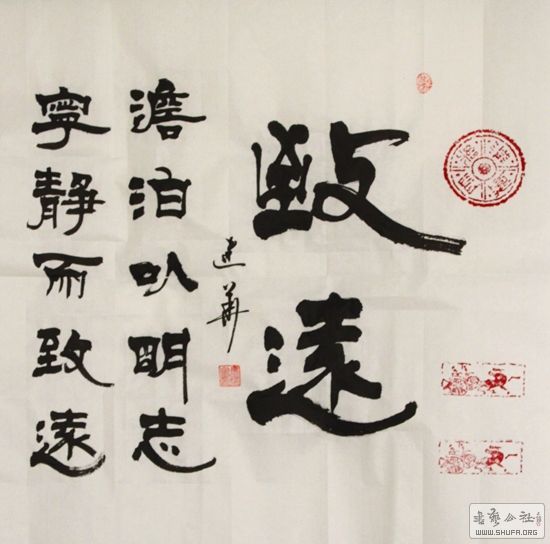 致遠
建華
澹泊以明志
寧靜而致遠
書藝公社
WWW.SHUFA.ORG